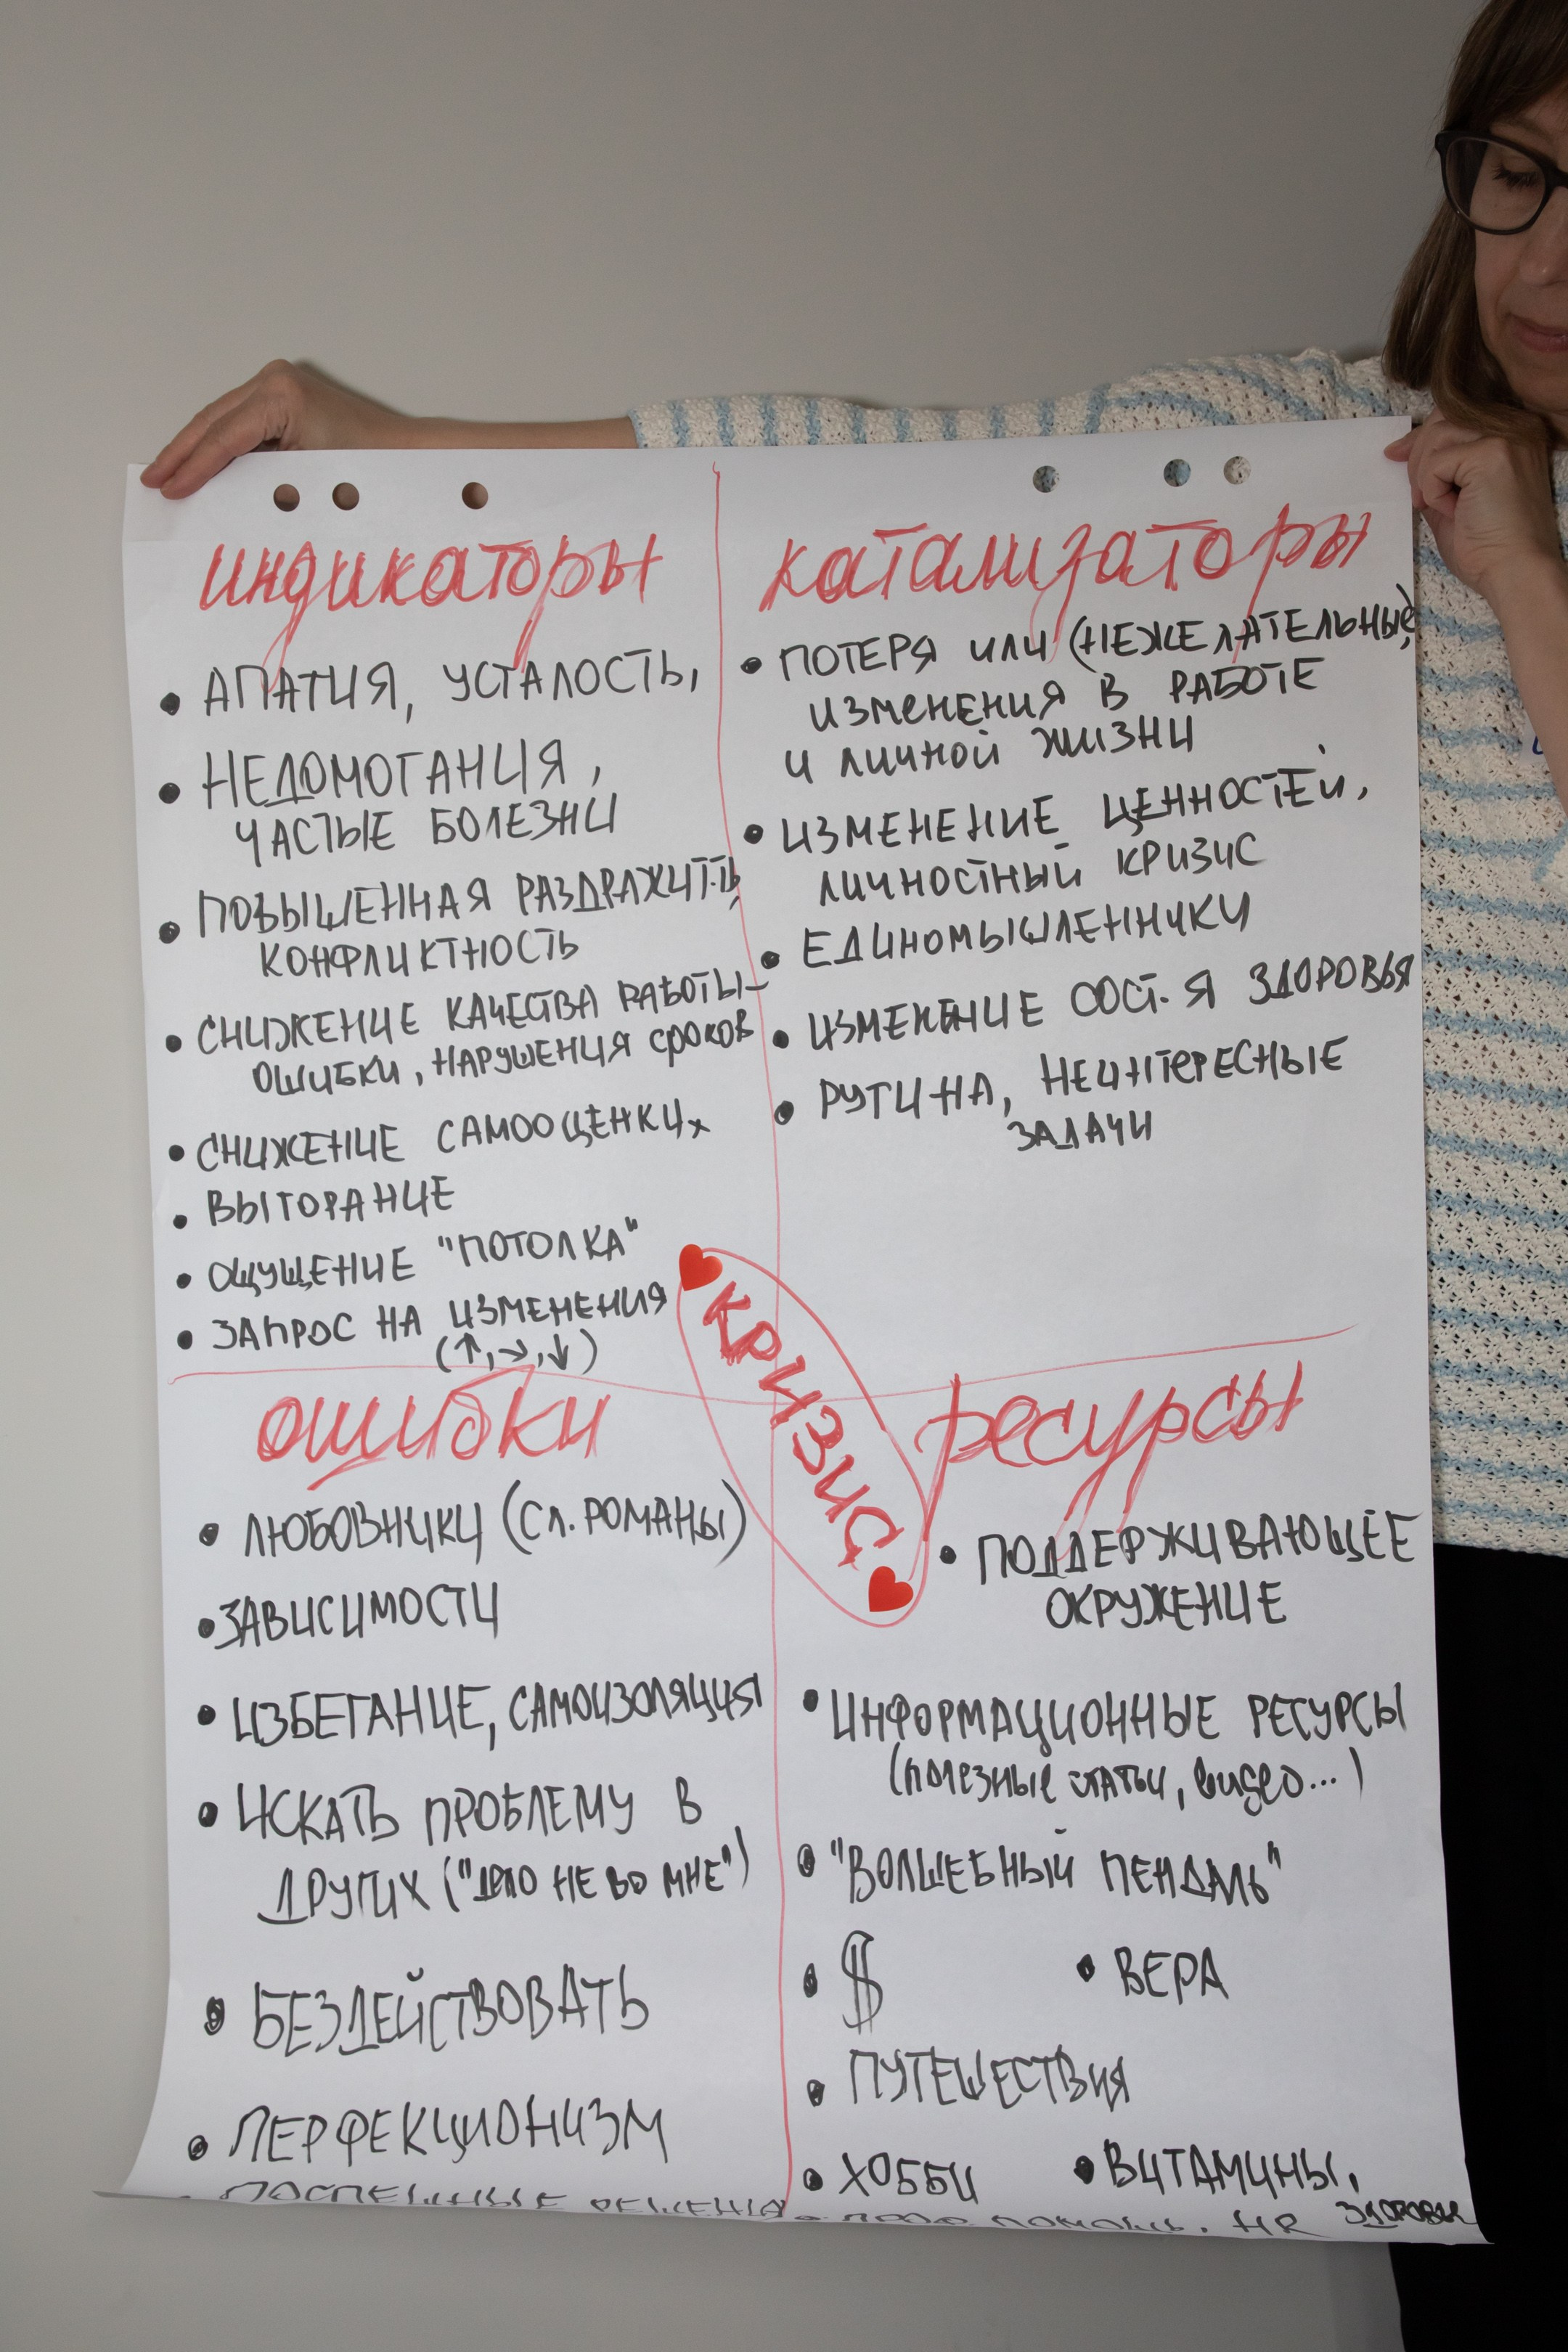 индикаторы
• АПАТИЯ, УСТАЛОСТЬ,
• НЕДОМОГАНИЯ,
ЧАСТЫЕ БОЛЕЗНИ
• ПОВЫШЕННАЯ РАЗДРАЖИТ-ТЬ,
КОНФЛИКТНОСТЬ
• СНИЖЕНИЕ КАЧЕСТВА РАБОТЫ –
ОШИБКИ, НАРУШЕНИЯ СРОКОВ
• СНИЖЕНИЕ САМООЦЕНКИ
• ВЫГОРАНИЕ
• ОЩУЩЕНИЕ "ПОТОЛКА"
• ЗАПРОС НА ИЗМЕНЕНИЯ
(↑,→,↓)
катализаторы
• ПОТЕРЯ ИЛИ (НЕЖЕЛАТЕЛЬНЫЕ)
ИЗМЕНЕНИЯ В РАБОТЕ
И ЛИЧНОЙ ЖИЗНИ
• ИЗМЕНЕНИЕ ЦЕННОСТЕЙ,
ЛИЧНОСТНЫЙ КРИЗИС
• ЕДИНОМЫШЛЕННИКИ
• ИЗМЕНЕНИЕ СОСТ-Я ЗДОРОВЬЯ
• РУТИНА, НЕИНТЕРЕСНЫЕ
ЗАДАЧИ
КРИЗИС
ошибки
• ЛЮБОВНИКИ (СЛ. РОМАНЫ)
• ЗАВИСИМОСТИ
• ИЗБЕГАНИЕ, САМОИЗОЛЯЦИЯ
• ИСКАТЬ ПРОБЛЕМУ В
ДРУГИХ ("ДЕЛО НЕ ВО МНЕ")
• БЕЗДЕЙСТВОВАТЬ
• ПЕРФЕКЦИОНИЗМ
• ПОСПЕШНЫЕ РЕШЕНИЯ
ресурсы
• ПОДДЕРЖИВАЮЩЕЕ
ОКРУЖЕНИЕ
• ИНФОРМАЦИОННЫЕ РЕСУРСЫ
(ПОЛЕЗНЫЕ СТАТЬИ, видео...)
• "ВОЛШЕБНЫЙ ПЕНДАЛЬ"
• $ • ВЕРА
• ПУТЕШЕСТВИЯ
• ХОББИ • ВИТАМИНЫ,
ЗДОРОВЬЕ
• ПОМОЩЬ, HR